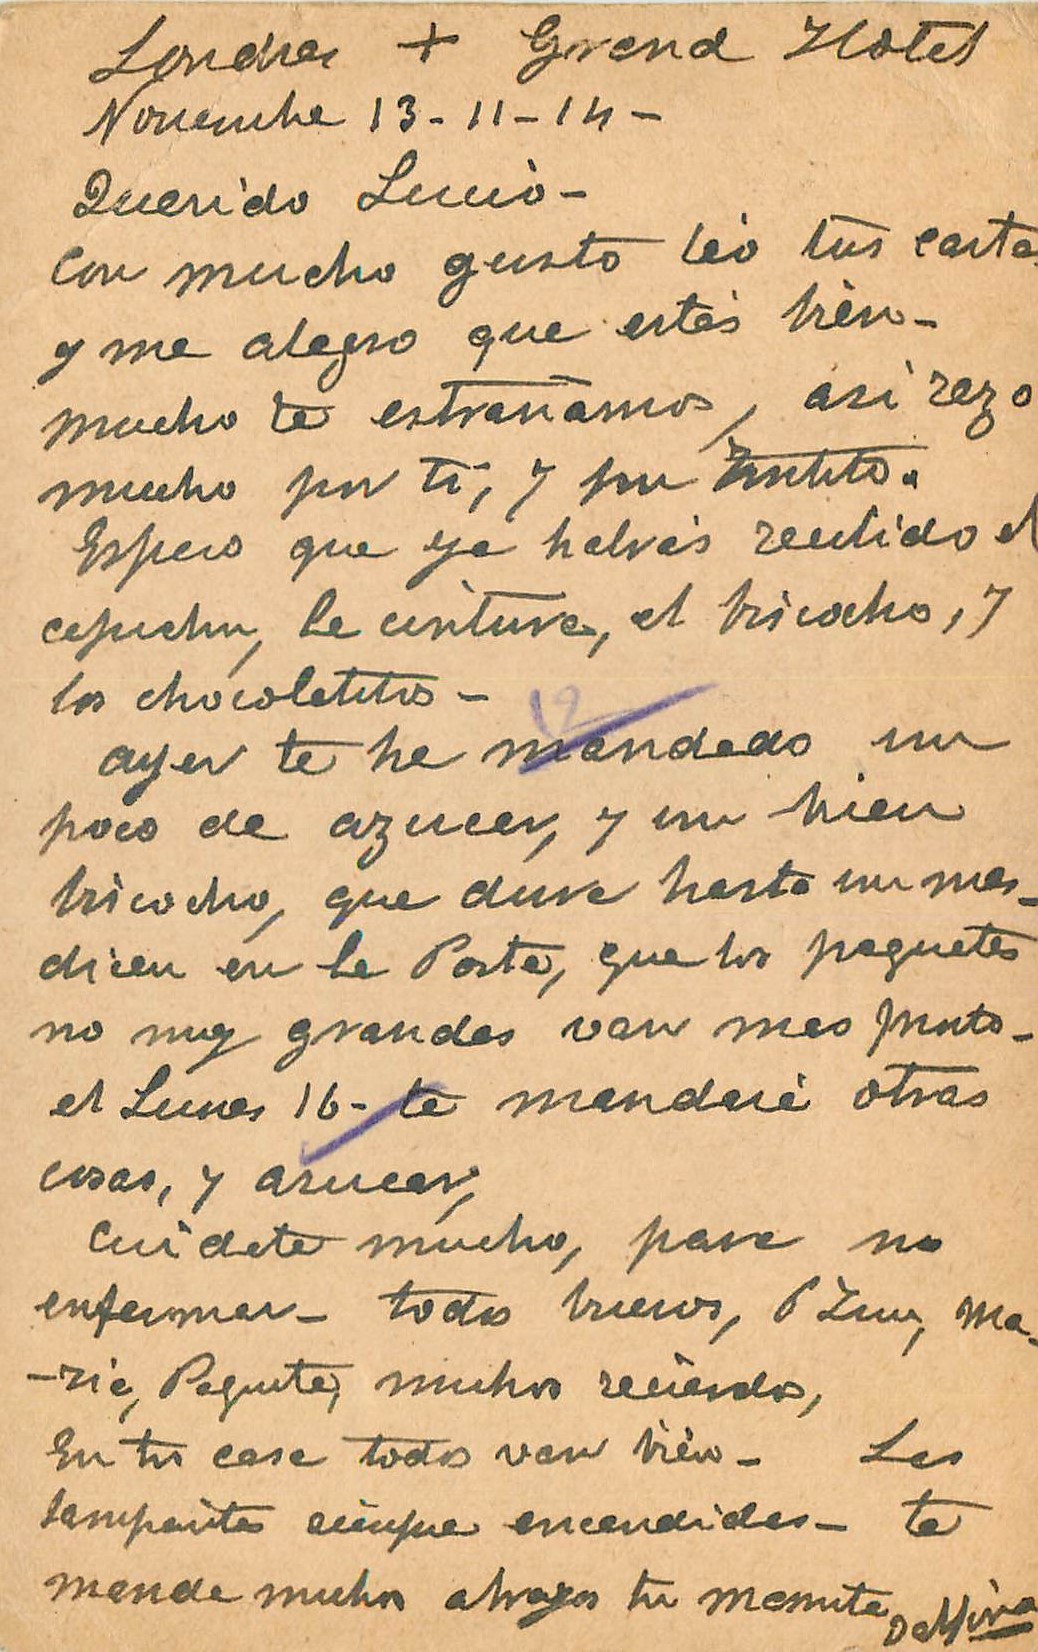 Londres + Grand Hotel
Noviembre 13-11-14-
Querido Lucio-
con mucho gusto leo tus cartas
y me alegro que estés bien-
mucho te estrañamos, asi rezo
mucho por ti, y por
Espero que ya habrás recibido el
capuchon, la cintura, el biscocho, y
los chocolatitos-
12
ayer te he mandado un
poco de azucar, y un bien
biscocho, que dura hasta un mes-
dicen en la Posta, que los paquetes
no muy grandes van mas pronto-
el Lunes 16- te mandaré otras
cosas, y asucar,
Cuidate mucho, para no
enfermar- todos buenos, Ma-
-ria, Paquita, muchos recuerdos,
En tu casa todos van bien- Las
lamparitas siempre encendidas- te
manda muchos abrazos tu mamita
Delfina